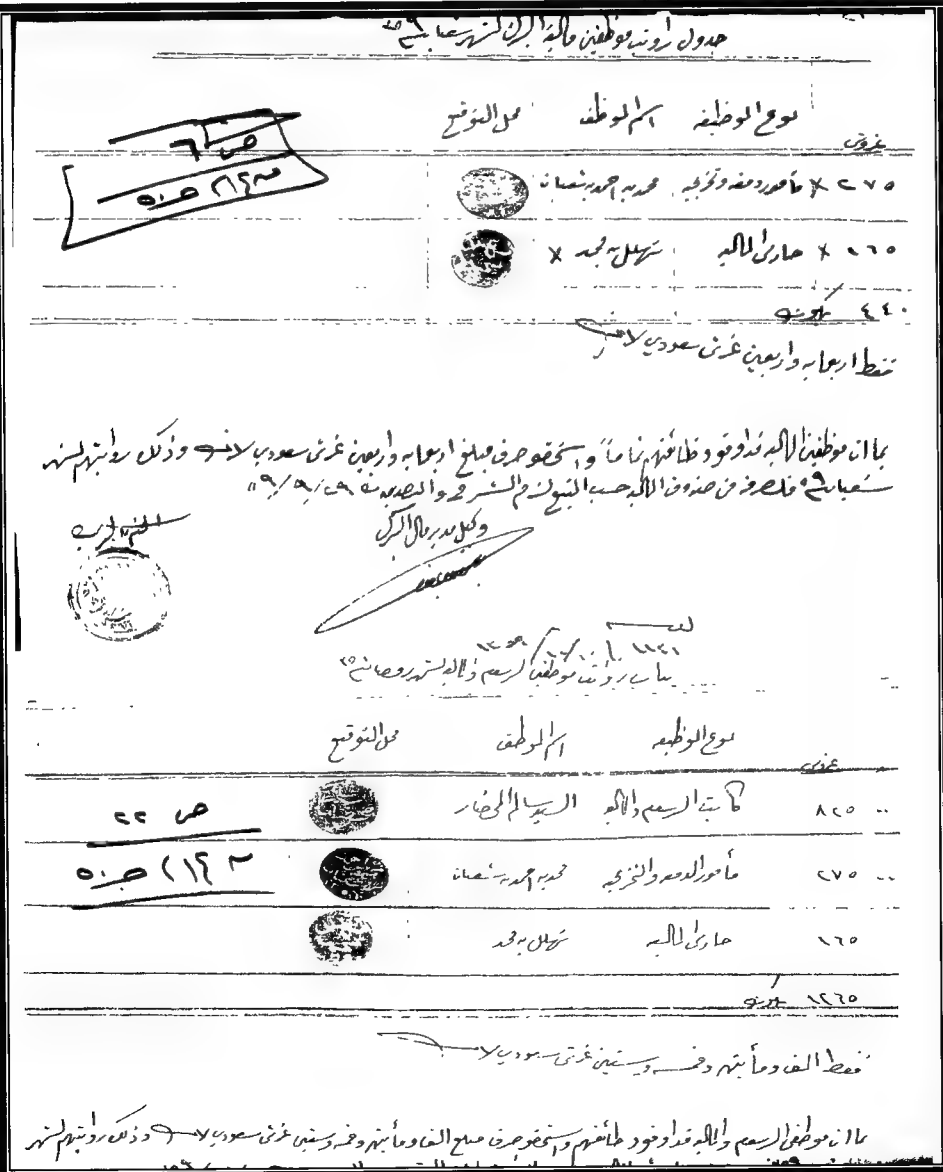 جدول رواتب موظفين مالية البرك لشهر شعبان ٥٩
غروش نوع الوظيفه اسم الموظف محل التوقيع
ص ٦
٢٧٥ × مأمور دمغه وتخرجيه محمد بن احمد بن شعبان
١٦٥ × حارس الماليه شهلل بن محمد ×
٤٤٠ يكون
فقط اربعمايه واربعين غرش سعودي لاغير
بما ان موظفين الماليه قد اوفو وظائفهم تماماً واستحقو صرف مبلغ اربعمايه واربعين غرش سعودي لاغير وذلك رواتبهم لشهر
شعبان ٥٩ فلصرفه من صندوق الماليه حسب المتبع لزم الشرح والتصديق ٢٩/٩/٥٩
وكيل مدير مال البرك
باب رواتب موظفين الرسوم والماليه لشهر رمضان ٥٩
غروش نوع الوظيفه اسم الموظف محل التوقيع
٨٢٥ كاتب الرسوم والماليه السيد سالم المحضار
ص ٢٢
٢٧٥ مأمور الدمغه والتخرجيه محمد بن احمد بن شعبان
١٦٥ حارس الماليه شهلل بن محمد
١٢٦٥ يكون
فقط الف ومأتين وخمسه وستين غرش سعودي لاغير
بما ان موظفي الرسوم والماليه قد اوفو وظائفهم واستحقو صرف مبلغ الف ومأتين وخمسه وستين غرش سعودي لاغير وذلك رواتبهم لشهر